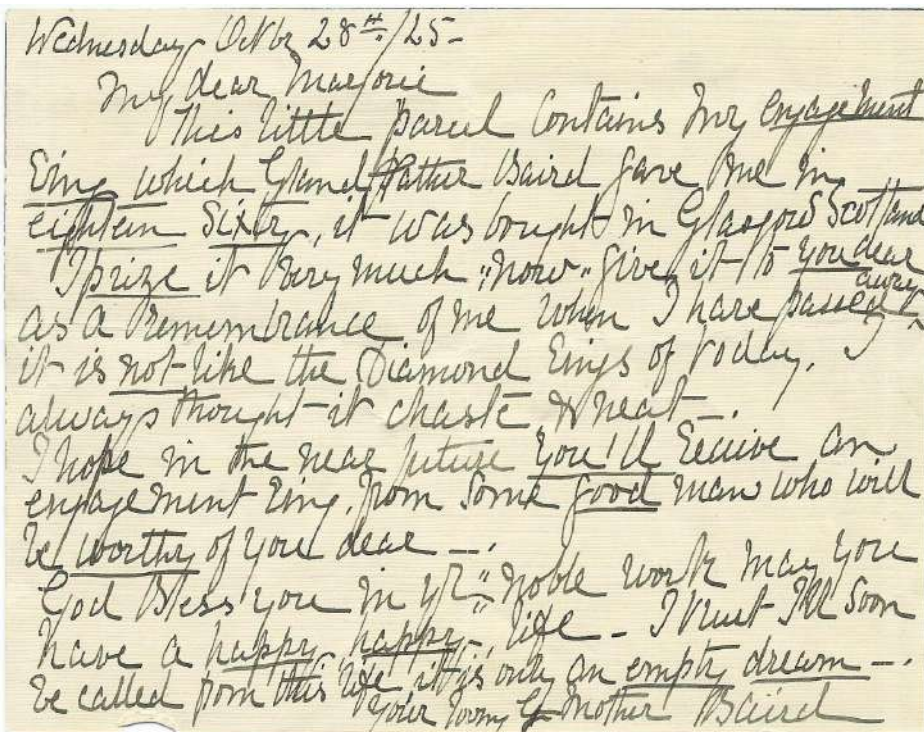 Wednesday Octbr 28th/25-
My dear Marjorie
This little parcel contains my engagement
Ring which Grand father Baird gave me in
eighteen sixty, it was bought in Glasgow Scotland
I prize it very much "now" give it to you dear
as a remembrance of me when I have passed away
it is not like the Diamond Rings of today, I
always thought it chaste & neat -.
I hope in the near future you'll receive an
engagement ring from some good man who will
be worthy of you dear -.
God Bless you in yr "noble work may you
have a happy, happy - life - I trust I'll soon
be called from this life, it is only an empty dream -.
Your loving G Mother Baird